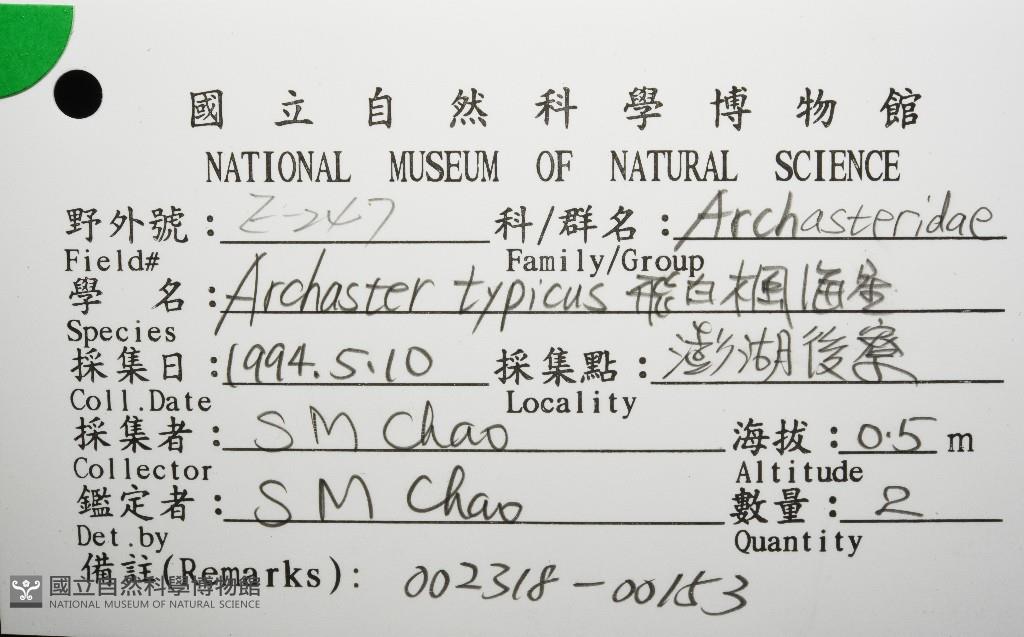 國立自然科學博物館
NATIONAL MUSEUM OF NATURAL SCIENCE
野外號：Z-247 科/群名：Archasteridae
Field# Family/Group
學 名：Archaster typicus 飛白楓海星
Species
採集日：1994.5.10 採集點：澎湖後寮
Coll.Date Locality
採集者：S M Chao 海拔：0.5 m
Collector Altitude
鑑定者：S M Chao 數量：2
Det.by Quantity
備註(Remarks)： 002318-00153
國立自然科學博物館
NATIONAL MUSEUM OF NATURAL SCIENCE